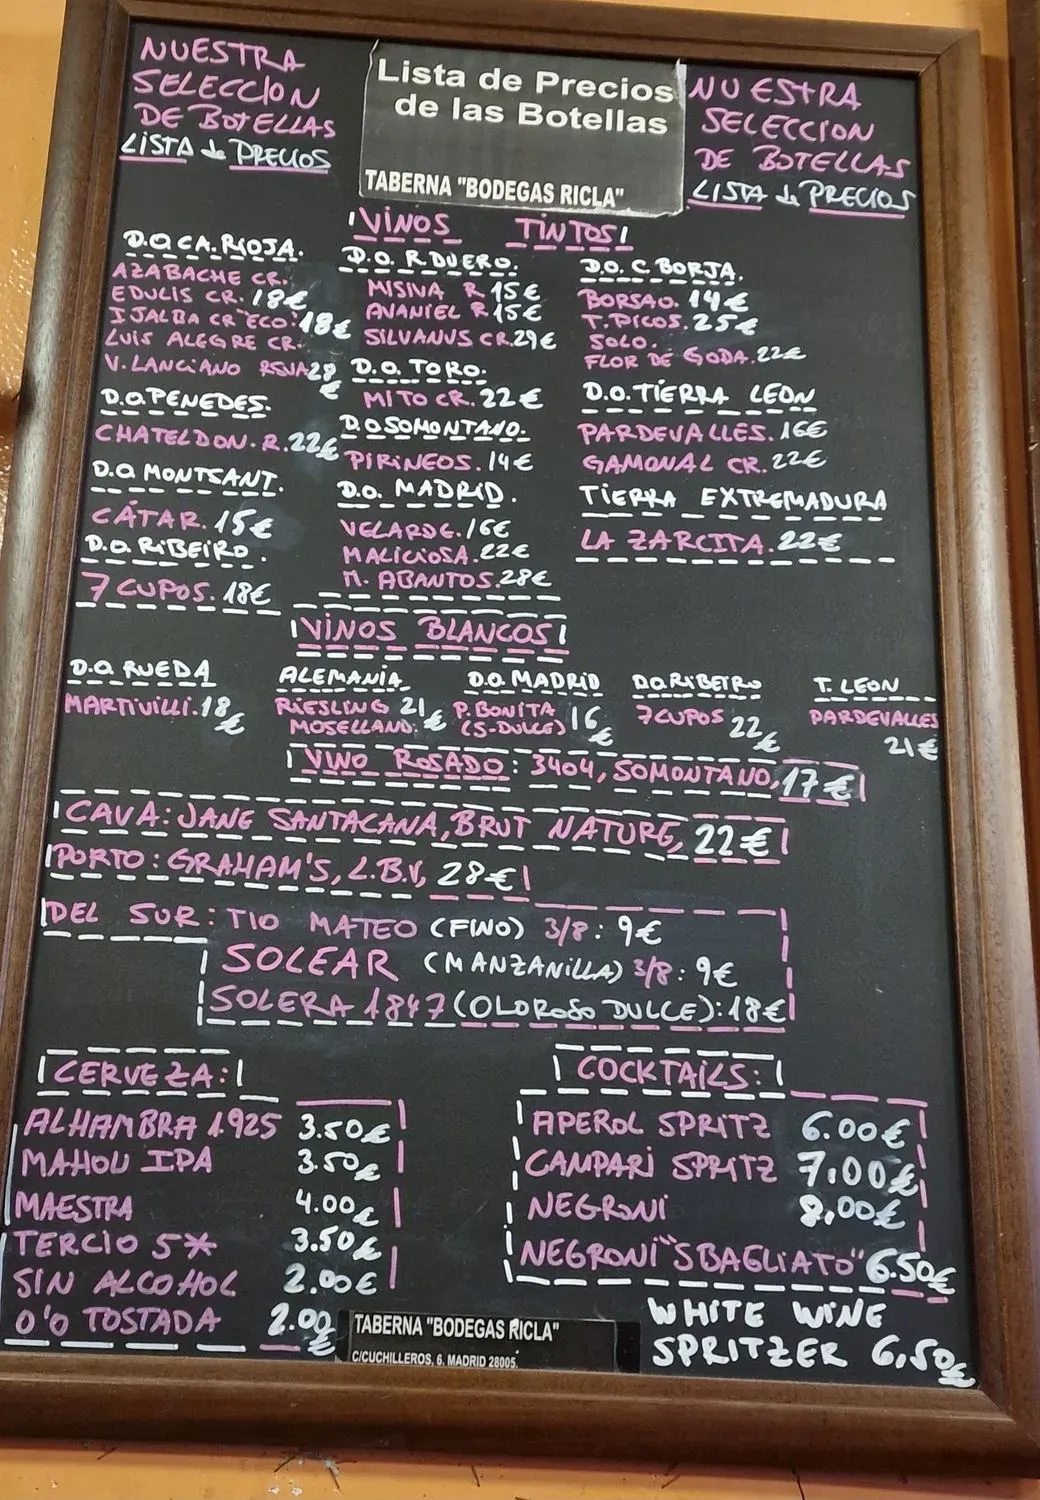 NUESTRA
SELECCION
DE BOTELLAS
LISTA de PRECIOS
Lista de Precios
de las Botellas
TABERNA "BODEGAS RICLA"
NUESTRA
SELECCION
DE BOTELLAS
LISTA de PRECIOS
VINOS TINTOS
D.O.CA. RIOJA.
AZABACHE CR.
EDULIS CR. 18€
IJALBA CR ECO. 18€
LUIS ALEGRE CR.
V. LANCIANO RSVA 29€
D.O. PENEDES.
CHATELDON. R. 22€
D.O MONTSANT.
CÁTAR. 15€
D.O. RIBEIRO.
7 CUPOS. 18€
D.O. R DUERO.
MISIVA R 15€
AVANIEL R 15€
SILVANUS CR. 29€
D.O. TORO.
MITO CR. 22€
D.O SOMONTANO.
PIRINEOS. 14€
D.O. MADRID.
VELARDE. 16€
MALICIOSA. 22€
M. ABANTOS. 28€
D.O. C. BORJA.
BORSAO. 14€
T. PICOS. 25€
SOLO.
FLOR DE GODA. 22€
D.O. TIERRA LEON
PARDEVALLES. 16€
GAMONAL CR. 22€
TIERRA EXTREMADURA
LA ZARCITA. 22€
VINOS BLANCOS
D.O. RUEDA
MARTIVILLI. 18€
ALEMANIA
RIESLING 21€
MOSELLAND.
D.O. MADRID
P. BONITA 16€
(S-DULCE)
D.O. RIBEIRO
7 CUPOS 22€
T. LEON
PARDEVALLES
21€
VINO ROSADO: 3404, SOMONTANO, 17€
CAVA: JANE SANTACANA, BRUT NATURE, 22€
PORTO: GRAHAM'S, L.B.V, 28€
DEL SUR: TIO MATEO (FINO) 3/8: 9€
SOLEAR (MANZANILLA) 3/8: 9€
SOLERA 1847 (OLOROSO DULCE): 18€
CERVEZA:
ALHAMBRA 1925 3.50€
MAHOU IPA 3.50€
MAESTRA 4.00€
TERCIO 5* 3.50€
SIN ALCOHOL 2.00€
0'0 TOSTADA 2.00€
COCKTAILS:
APEROL SPRITZ 6.00€
CAMPARI SPRITZ 7,00€
NEGRONI 8,00€
NEGRONI "SBAGLIATO" 6.50€
WHITE WINE
SPRITZER 6,50€
TABERNA "BODEGAS RICLA"
C/CUCHILLEROS, 6. MADRID 28005.